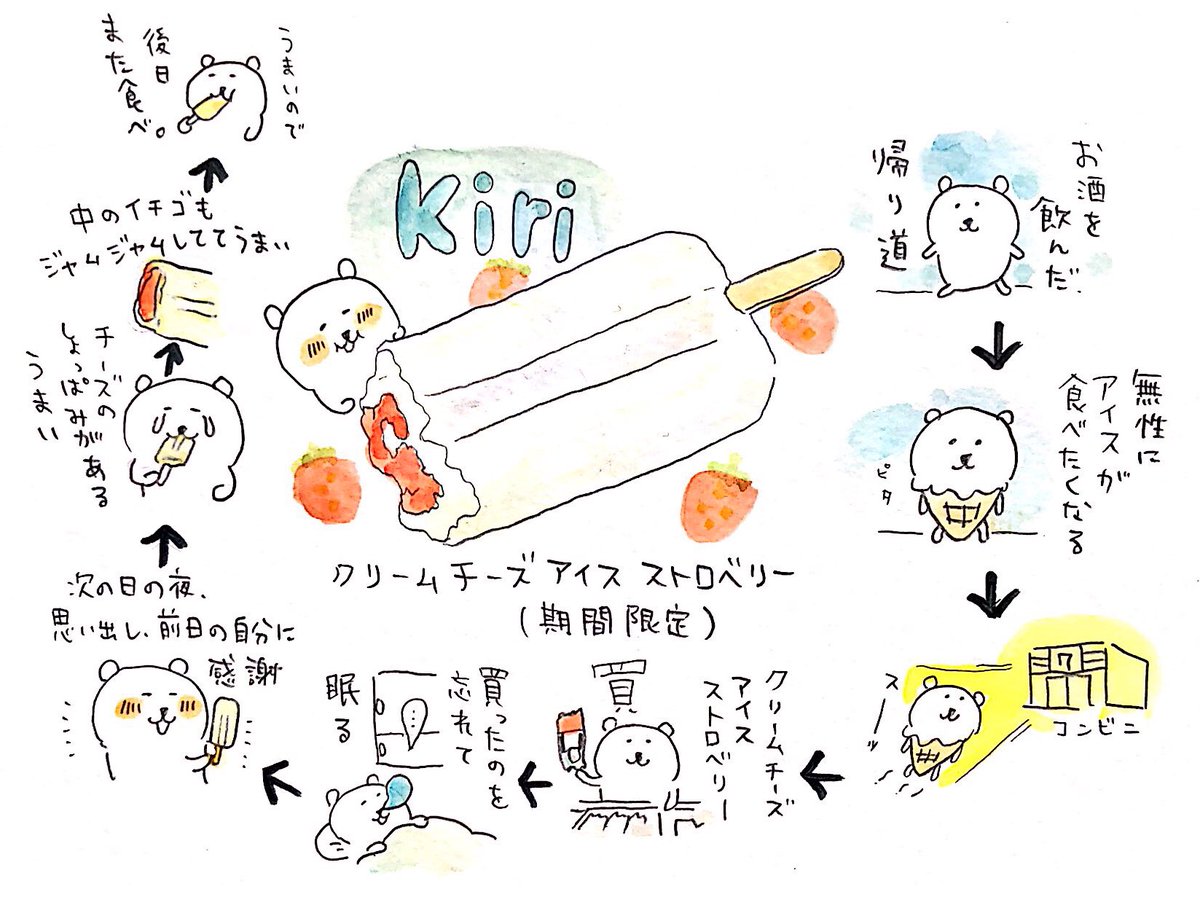 kiri
クリームチーズ アイス ストロベリー
(期間限定)
お酒を
飲んだ、
帰り道
無性に
アイスが
食べたくなる
ピタ
スーッ
コンビニ
クリームチーズ
アイス
ストロベリー
買
買ったのを
忘れて
眠る
次の日の夜、
思い出し、前日の自分に
感謝
チーズの
しょっぱみがある
うまい
中のイチゴも
ジャムジャムしててうまい
うまいので
後日
また食べ。